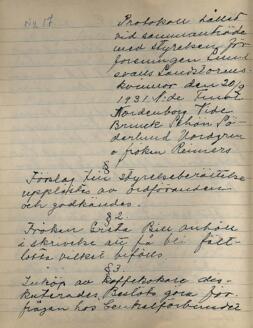 No 17
Protokoll hållet
vid sammanträde
med styrelsen för
föreningen Sund
svalls Landstorms
kvinnor den 20/9
1931. N:de Fruar
Nordenborg Vide
Brunck Schön Sö
derlund Nordgren
o fröken Reiners
§
Förslag till styrelseberättelse
upplästes av ordföranden
och godkändes.
§ 2.
Fröken Greta Bill anhöll
i skrivelse att få bli fält-
lotta vilket bifölls
§ 3.
Inköp av kaffekokare des-
kuterades. Beslöts göra för
frågan hos Centralförbundet